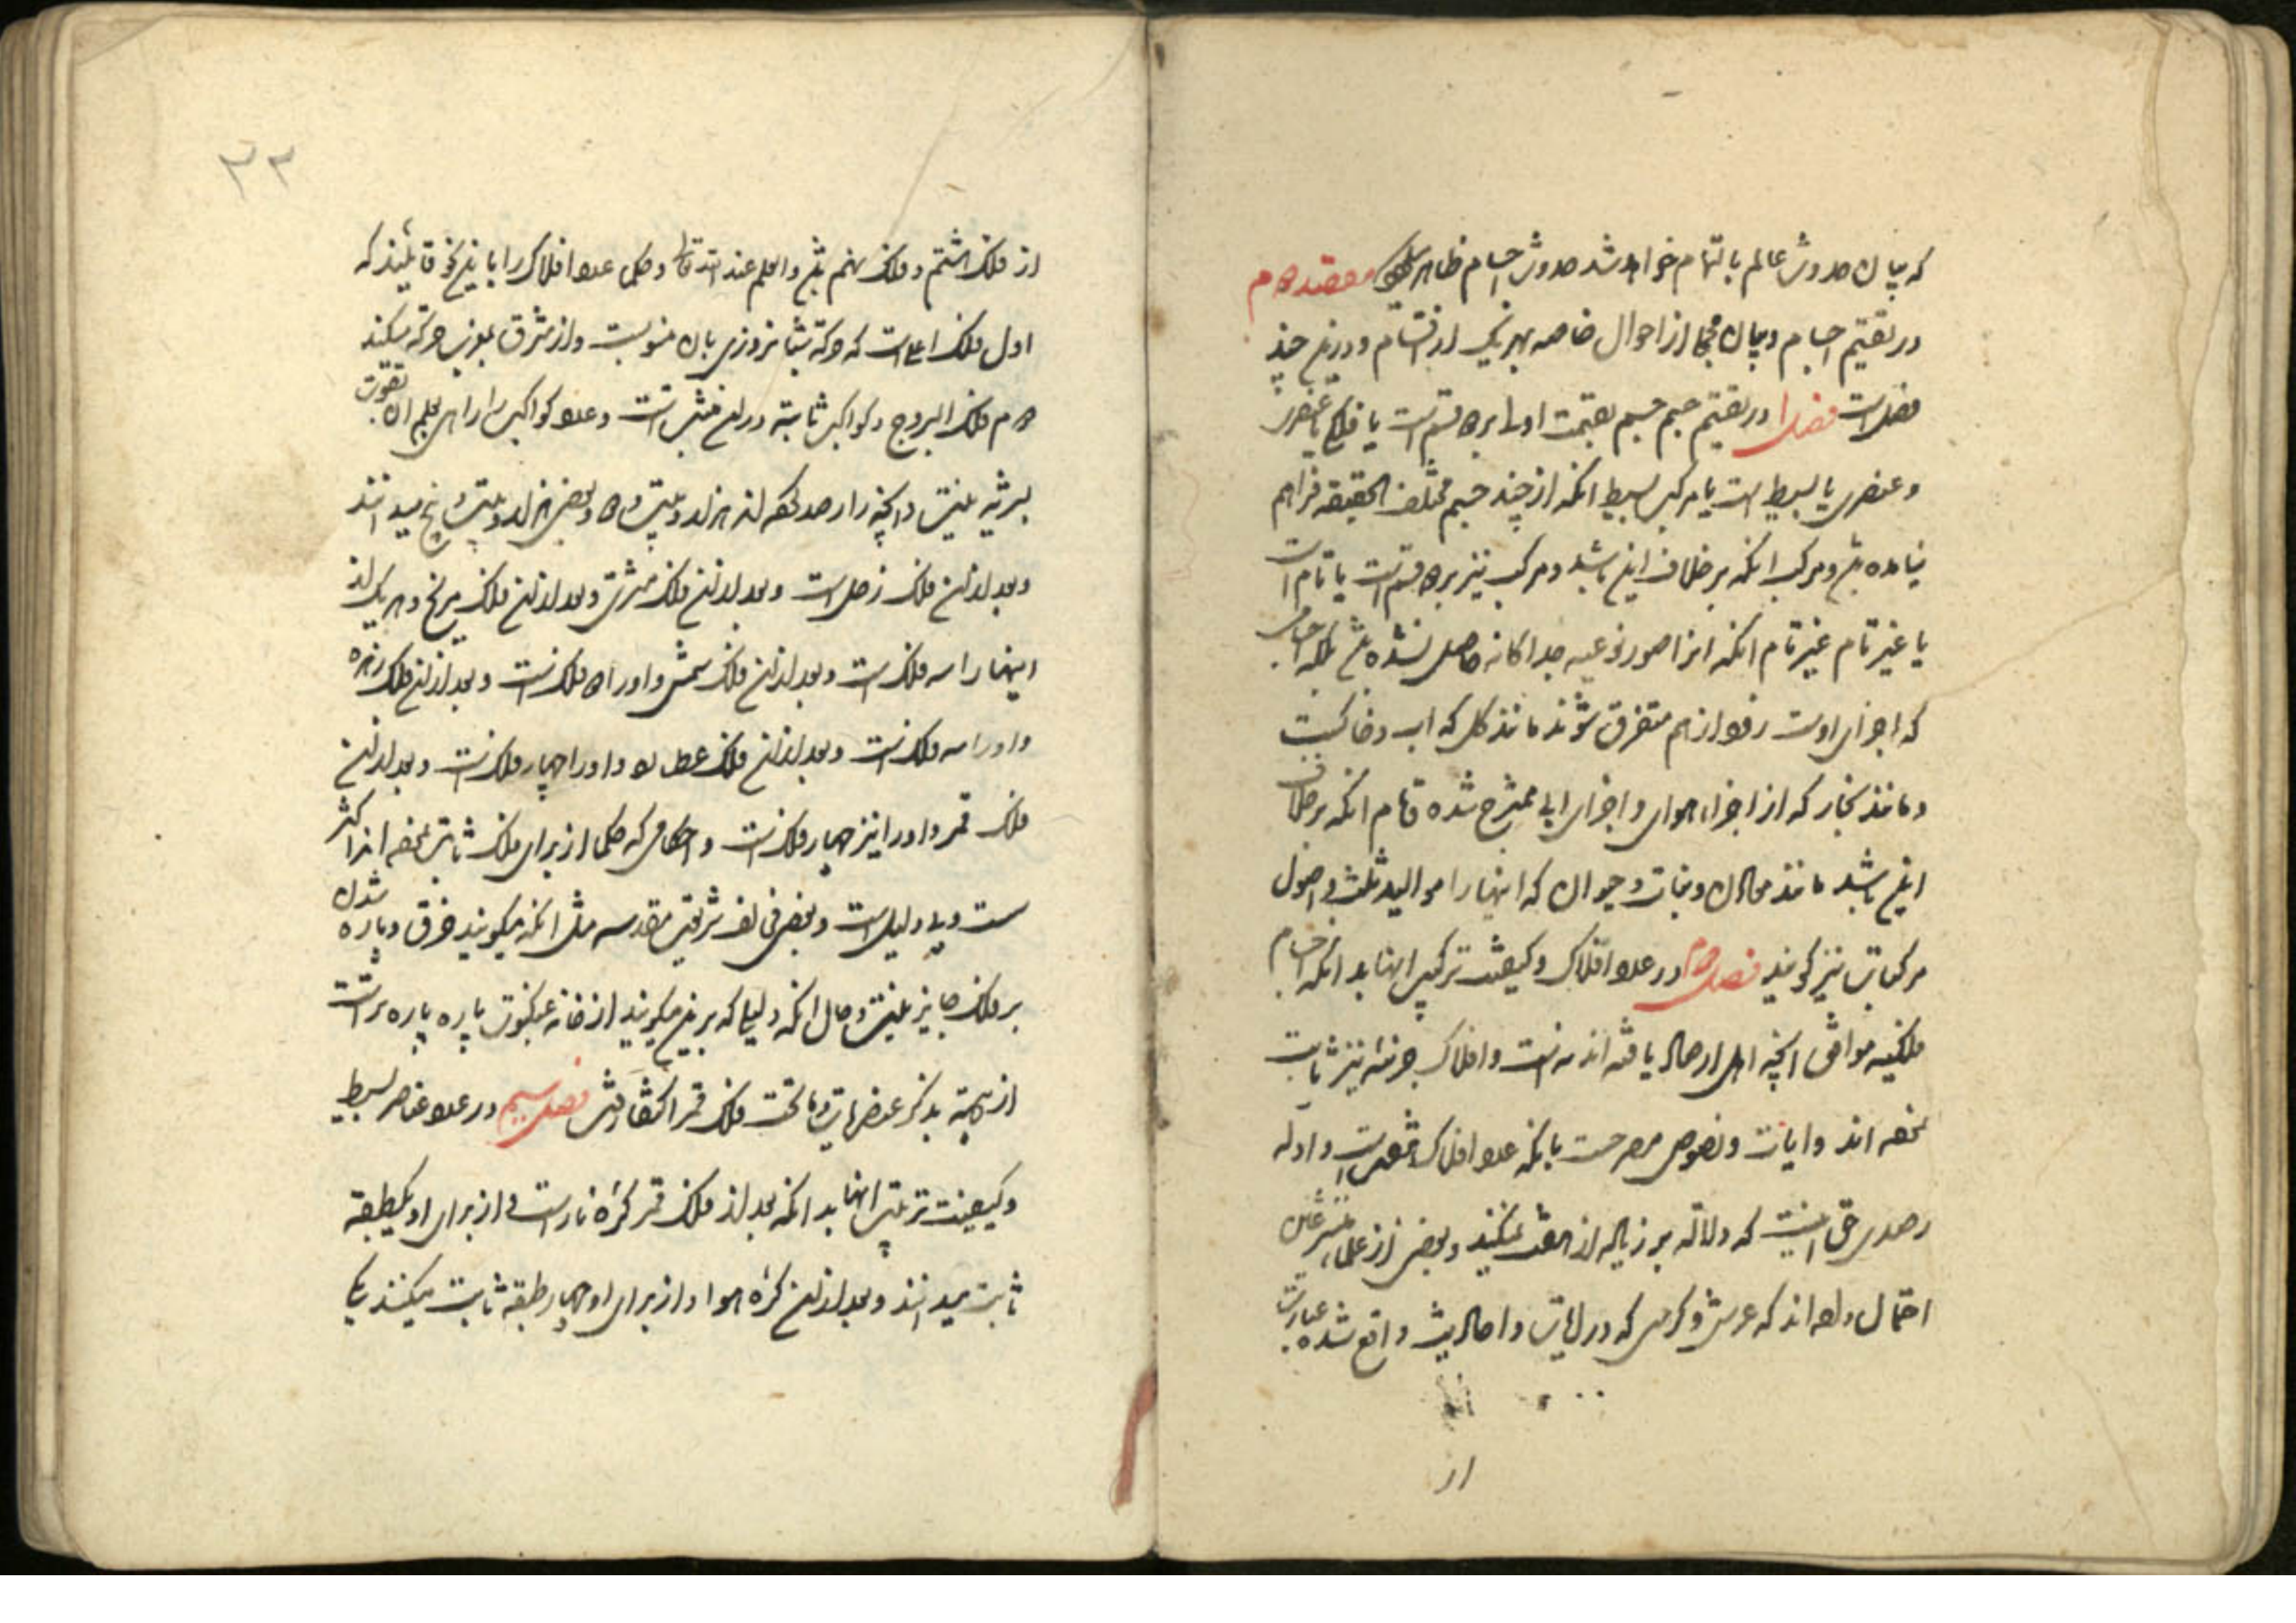 که بیان حدوث عالم بالتمام خواهد شد حدوث اجسام ظاهر میشود مقصد دوم
در تقسیم اجسام و بیان مجملی از احوال خاصه بهر یک از اقسام و درین چند
فصل است فصل ۱ در تقسیم جسم جسم بقسمت اولی بر دو قسم است یا فلکی یا عنصری
و عنصری یا بسیط است یا مرکب بسیط انکه از چند جسم مختلف الحقیقة فراهم
نیامده باشد و مرکب انکه بر خلاف این باشد و مرکب نیز بر دو قسم است یا تام است
یا غیر تام غیر تام انکه انرا صورة نوعیه جداکانه حاصل نشده باشد بلکه اجسامی
که اجزای اوست زود از هم متفرق شوند مانند کل که اب و خاکست
و مانند بخار که از اجزاء هوای و اجزای ابی ممتزج شده تام انکه بر خلاف
این باشد مانند معادن و نبات و حیوان که اینها را موالید ثلث و اصول
مرکبات نیز کویند فصل دوم در عدد افلاک و کیفیت ترکیب اینها بدانکه اجسام
فلکیه موافق انچه اهل ارصاد یافته اند نه است و افلاک جزئیه نیز ثابت
نموده اند و ایات و نصوص مصرحست بانکه عدد افلاک هفت است و ادله
رصدی حق اینست که دلالة بر زیاده از هفت نمیکند و بعضی از علماء متشرعین
احتمال داده اند که عرش و کرسی که در ایات و احادیث واقع شده عبارت
از
۳۲
از فلک هشتم و فلک نهم باشد والعلم عند الله تعالی و حکما عدد افلاک را باین نحو قائلند که
اول فلک اعلی است که حرکة شبانروزی بان منسوبست و از مشرق بمغرب حرکة میکند
دوم فلک البروج و کواکب ثابتة در ان مثبت است و عدد کواکب را راهی بعلم ان بقوت
بشریه نیست و انچه را رصد نموده اند هزار و بیست و دو و بعضی هزار و بیست و پنج میدانند
و بعد از ان فلک زحل است و بعد از ان فلک مشتری و بعد از ان فلک مریخ و هر یک از
اینها را سه فلک است و بعد از ان فلک شمس و او را دو فلک است و بعد از ان فلک زهره
و او را سه فلک است و بعد از ان فلک عطارد و او را چهار فلک است و بعد از ان
فلک قمر و او را نیز چهار فلک است و احکامی که حکما از برای فلک ثابت نموده اند اکثر
ست و بی دلیل است و بعضی مخالف شریعت مقدسه مثل انکه میکویند خرق و پاره شدن
بر فلک جایز نیست و حال انکه دلیلی که برین میکویند از خانه عنکبوت پاره پاره تر است
از بذکر عنصریات و ما تحت فلک قمر فصل سیم در عدد عناصر بسیط
و کیفیت ترتیب اینها بدانکه بعد از فلک قمر کرهٔ نار است و از برای او یکطبقه
ثابت میدانند و بعد از ان کرهٔ هوا و از برای او چهار طبقه ثابت میکنند یکی